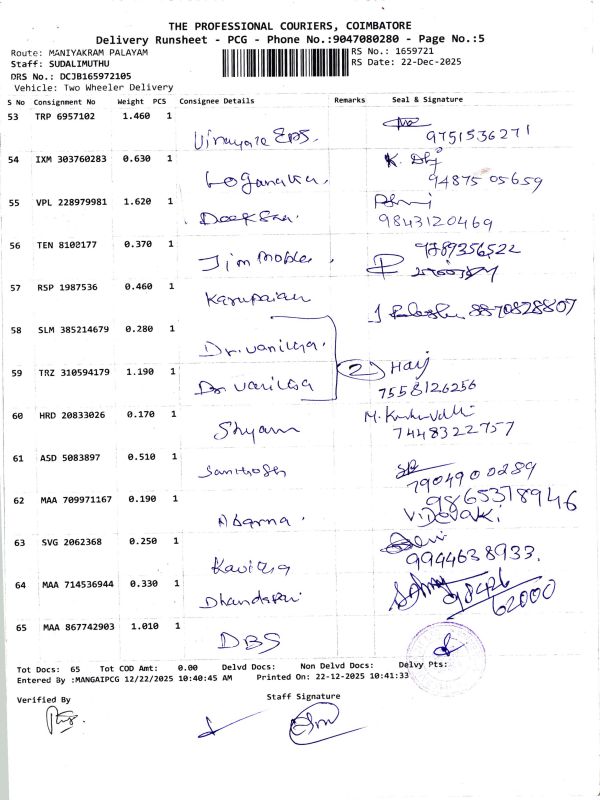 THE PROFESSIONAL COURIERS, COIMBATORE
Delivery Runsheet - PCG - Phone No.:9047080280 - Page No.:5
Route: MANIYAKRAM PALAYAM
RS No.: 1659721
Staff: SUDALIMUTHU
RS Date: 22-Dec-2025
DRS No.: DCJB165972105
Vehicle: Two Wheeler Delivery
S No Consignment No Weight PCS Consignee Details Remarks Seal & Signature
53 TRP 6957102 1.460 1
Vinayaga EPS. 9751536271
54 IXM 303760283 0.630 1 K.
Loganatha. 94875 05659
55 VPL 228979981 1.620 1
Deeksha. 9843120469
56 TEN 8108177 0.370 1 9789356522
Jim mobles
57 RSP 1987536 0.460 1
Karupaian J 8870828807
58 SLM 385214679 0.280 1
Dr. Vanitha.
59 TRZ 310594179 1.190 1 2) Harj
Dr. Vanitha 7558126256
60 HRD 20833026 0.170 1 M.
Shyam 7448322757
61 ASD 5083897 0.510 1
Santhosh 7904900289
62 MAA 709971167 0.190 1 9865378946
Abarna. V. Devaki
63 SVG 2062368 0.250 1
Kavitha 9944638933.
64 MAA 714536944 0.330 1 98426
Dhandapani 62000
65 MAA 867742903 1.010 1
DBS
Tot Docs: 65 Tot COD Amt: 0.00 Delvd Docs: Non Delvd Docs: Delvy Pts:
Entered By :MANGAIPCG 12/22/2025 10:40:45 AM Printed On: 22-12-2025 10:41:33
Verified By Staff Signature